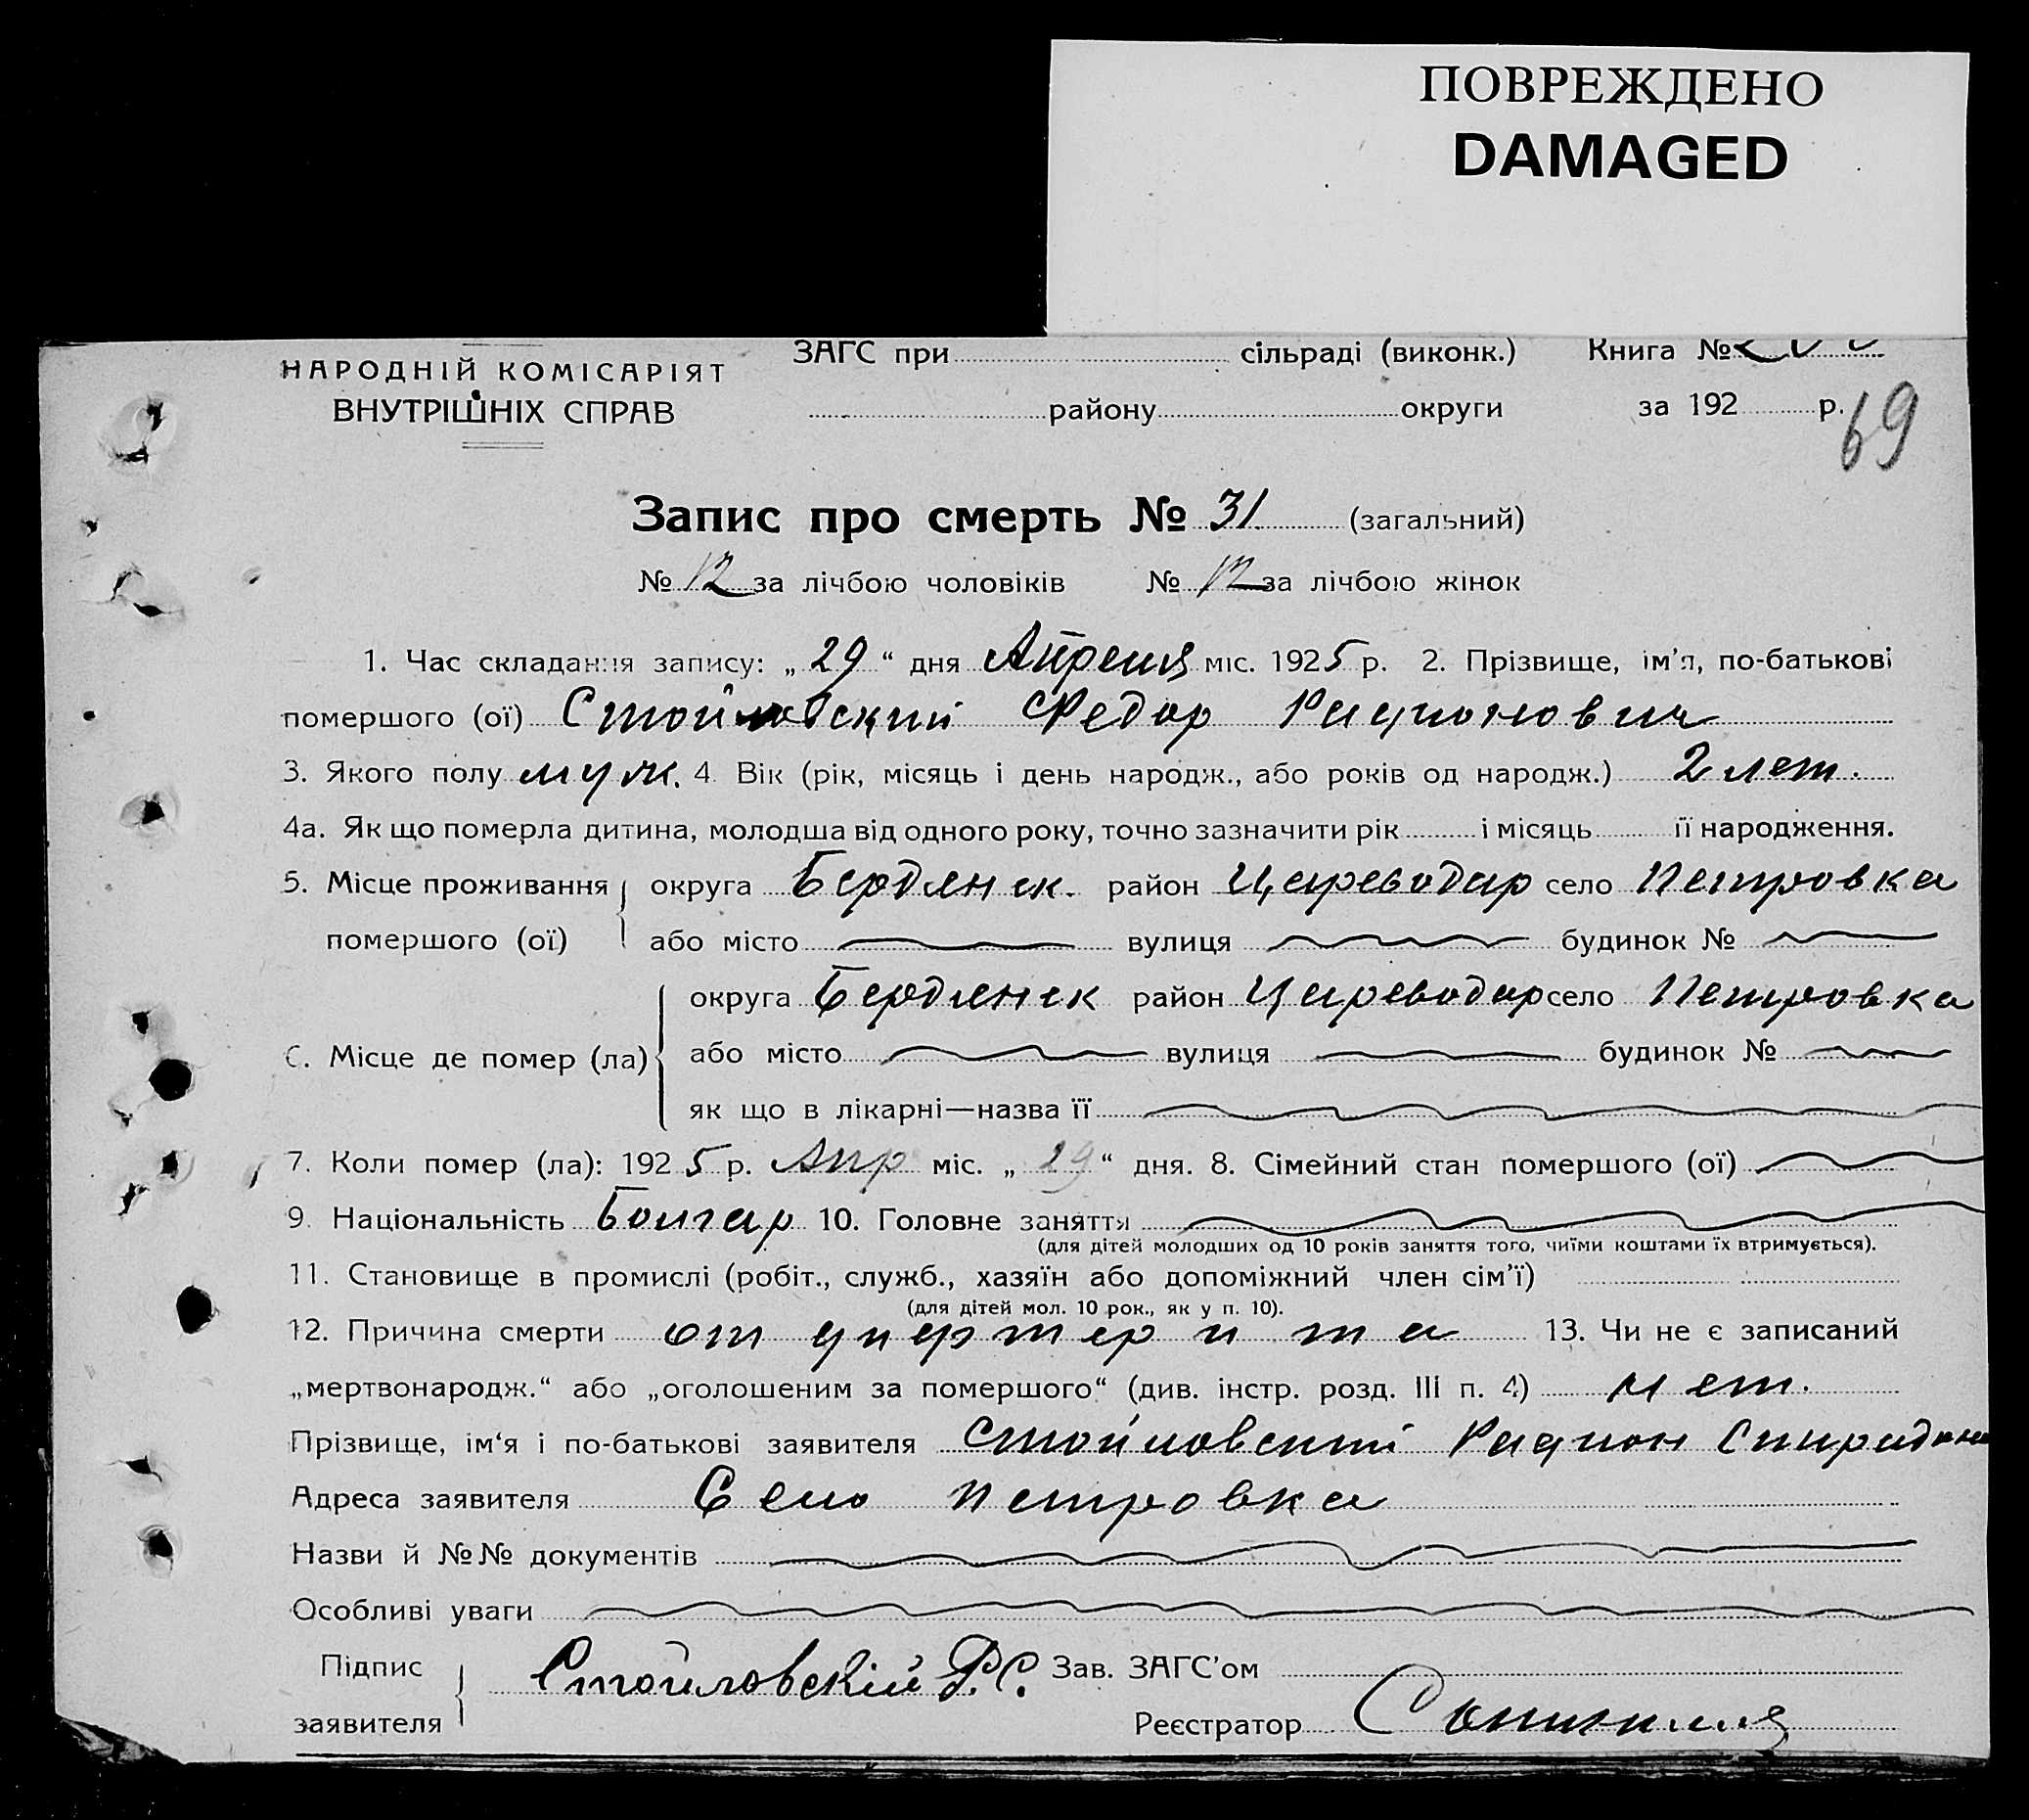 ПОВРЕЖДЕНО
DAMAGED
НАРОДНІЙ КОМІСАРІЯТ
ВНУТРІШНІХ СПРАВ
ЗАГС при сільраді (виконк.) Книга №
району округи за 192 р.
69
Запис про смерть № 31 (загальний)
№ 12 за лічбою чоловіків № 12 за лічбою жінок
1. Час складання запису: „ 29 “ дня Апреля міс. 1925 р. 2. Прізвище, ім'я, по-батькові
помершого (ої) Стойловский Федор Радионович
3. Якого полу муж. 4. Вік (рік, місяць і день народж., або років од народж.) 2 лет.
4а. Як що померла дитина, молодша від одного року, точно зазначити рік і місяць її народження.
5. Місце проживання округа Бердянск. район Цареводар село Петровка
помершого (ої) або місто вулиця будинок №
округа Бердянск район Цареводар село Петровка
6. Місце де помер (ла) або місто вулиця будинок №
як що в лікарні—назва її
7. Коли помер (ла): 1925 р. Апр міс. „ 29 “ дня. 8. Сімейний стан помершого (ої)
9. Національність Болгар 10. Головне заняття
(для дітей молодших од 10 років заняття того, чиїми коштами їх втримується).
11. Становище в промислі (робіт., служб., хазяїн або допоміжний член сім'ї)
(для дітей мол. 10 рок., як у п. 10).
12. Причина смерти от дифтерита 13. Чи не є записаний
„мертвонародж.“ або „оголошеним за помершого“ (див. інстр. розд. III п. 4) нет.
Прізвище, ім'я і по-батькові заявителя Стойловский Радион Спиридон
Адреса заявителя Село Петровка
Назви й №№ документів
Особливі уваги
Підпис заявителя Стойловскій Р. С. Зав. ЗАГС'ом
Реєстратор